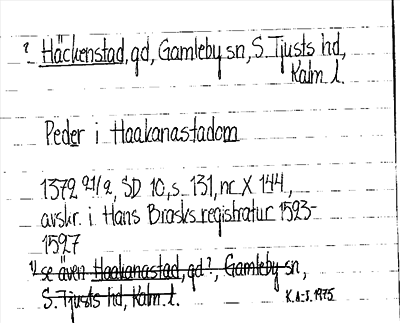 ? Häckenstad, gd, Gamleby sn, S. Tjusts hd,
Kalm l.
Peder i Haakanastadom
1372 21/2, SD 10, s. 131, nr X 144,
avskr. i Hans Brasks registratur 1523-
1527
1) se även Haakanastad, gd?, Gamleby sn,
S. Tjusts hd, Kalm l.
K.A-S. 1975